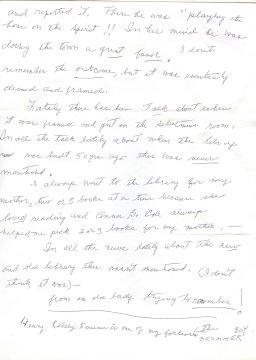 and reported it. Then he was "playing the
hose on the spirit!! In his mind he was
doing the town a great favor. I don't
remember the outcome, but it was
cleaned and framed.
Lately there has been talk about when
it was framed and put in the room.
In all the talk lately about when the library
was built 50 yrs ago this was never
mentioned.
I always went to the library for my
mother, two or 3 books at a time because she
loved reading and Anna B. Cole always
helped me pick 2 or 3 books for my mother. —
In all the news lately about the new
and old library this wasn't mentioned. (I don't
think it was) —
from an old lady trying to remember!
Henry Kelsey is one of my (the
DRUMMER